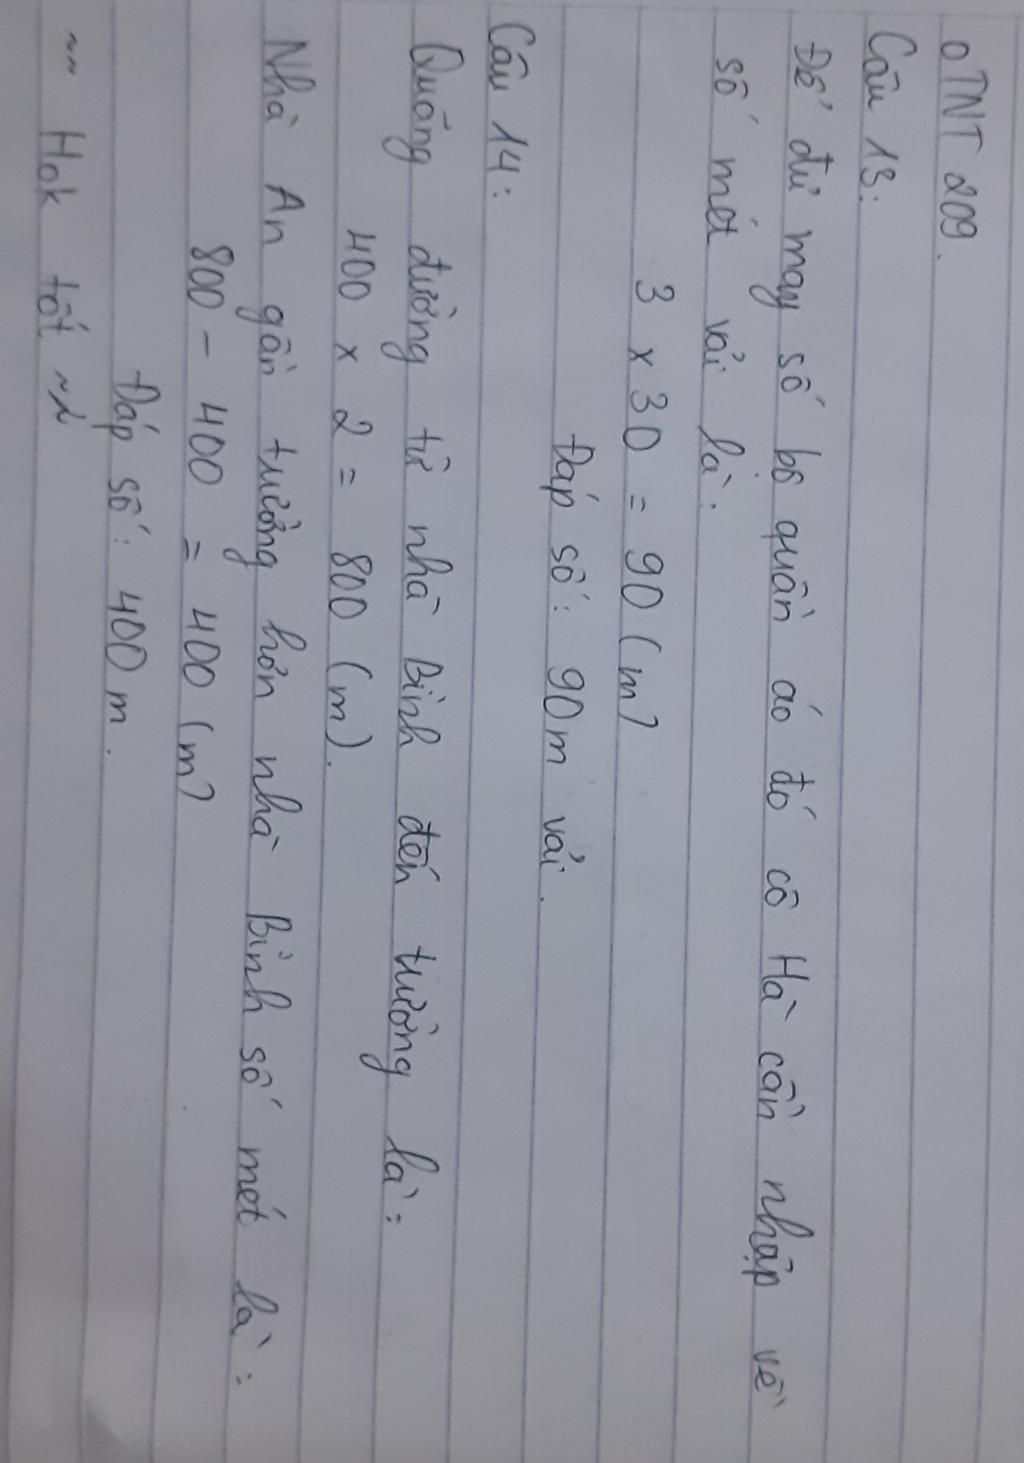 OTNT 209.
Câu 13:
Để đủ may số bộ quần áo đó cô Hà cần nhập về
số mét vải là:
3 x 30 = 90 (m)
Đáp số: 90m vải.
Câu 14:
Quãng đường từ nhà Bình đến trường là:
400 x 2 = 800 (m).
Nhà An gần trường hơn nhà Bình số mét là:
800 - 400 = 400 (m)
Đáp số: 400 m.
~~ Hok tốt ~~